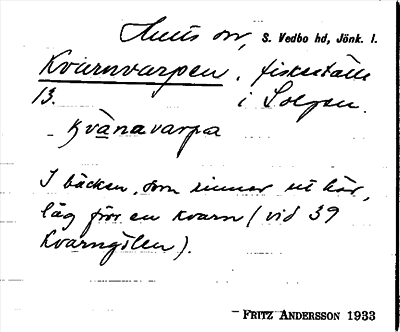 Hults sn, S. Vedbo hd, Jönk. l.
Kvarnvarpen, fiskeställe
13. i Solgen.
kvànavarpa
I bäcken, som rinner ut här,
låg förr en kvarn (vid 39
Kvarngölen).
FRITZ ANDERSSON 1933